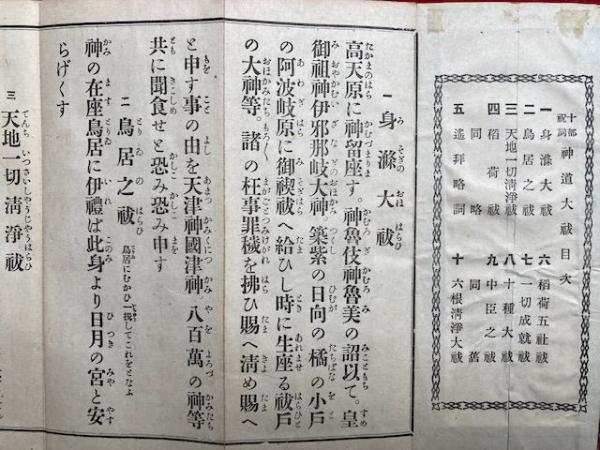 十部祝詞 神道大祓目次
一 身滌大祓
二 鳥居之祓
三 天地一切清淨祓
四 稲荷祓
同 略
五 遙拜略詞
六 稲荷五社祓
七 一切成就祓
八 十種大祓
九 中臣之祓
同 舊
十 六根清淨大祓
一 身滌大祓
高天原に神留座す。神魯伎神魯美の詔以て。皇
御祖神伊邪那岐大神。築紫の日向の橘の小戸
の阿波岐原に御禊祓へ給ひし時に生座る祓戸
の大神等。諸の枉事罪穢を拂ひ賜へ淸め賜へ
と申す事の由を天津神國津神。八百萬の神等
共に聞食せと恐み恐み申す
二 鳥居之祓 鳥居にむかひ一拝してこれをとなふ
神の在座鳥居に伊禮ば此身より日月の宮と安
らげくす
三 天地一切淸淨祓